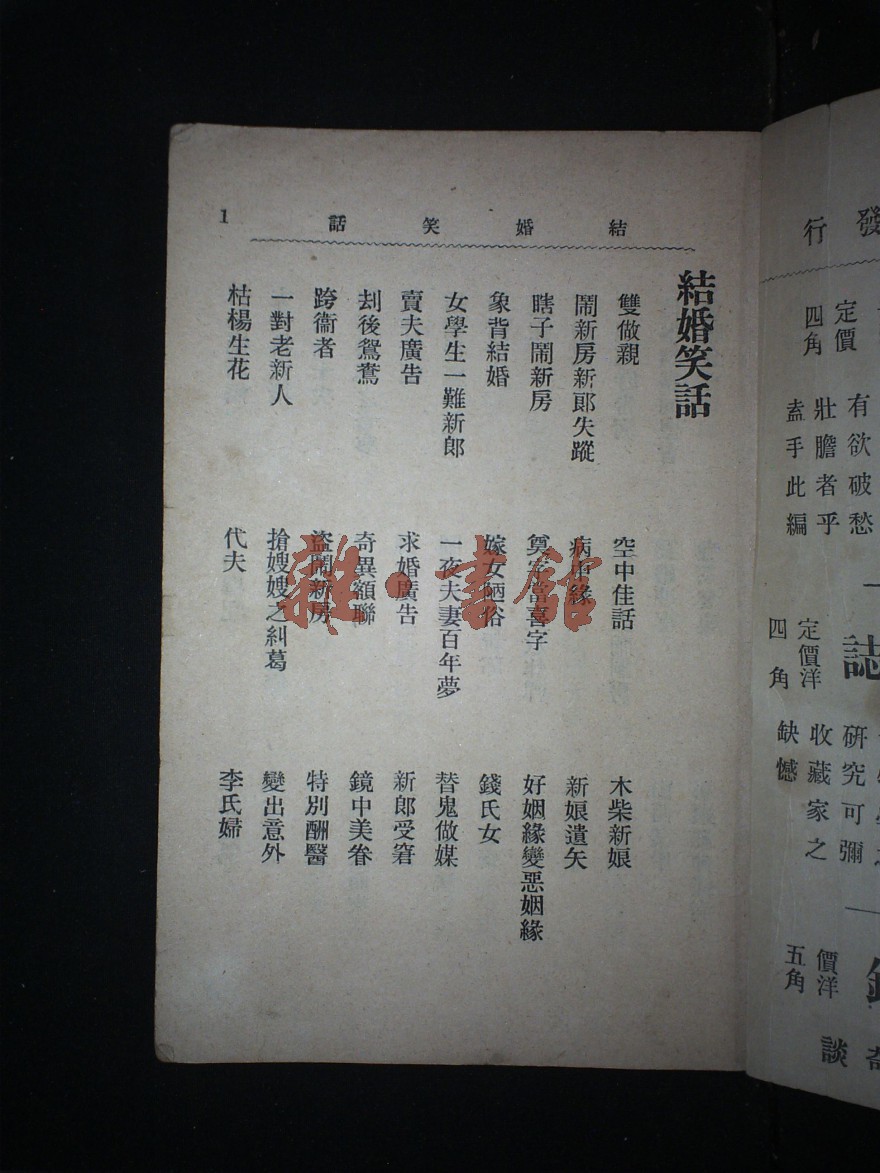 發行
定價
四角
有欲破愁
壯膽者乎
盍手此編
誌
定價洋
四角
研究可彌
收藏家之
缺憾
價洋
五角
奇
談
結婚笑話
1
結婚笑話
雙做親
空中佳話
木柴新娘
鬧新房新郎失蹤
病中緣
新娘遺矢
瞎子鬧新房
奠字當喜字
好姻緣變惡姻緣
象背結婚
嫁女陋俗
錢氏女
女學生一難新郎
一夜夫妻百年夢
替鬼做媒
賣夫廣告
求婚廣告
新郎受窘
刦後鴛鴦
奇異額聯
鏡中美眷
跨衞者
盜鬧新房
特別酬醫
一對老新人
搶嫂嫂之糾葛
變出意外
枯楊生花
代夫
李氏婦
雜·書館